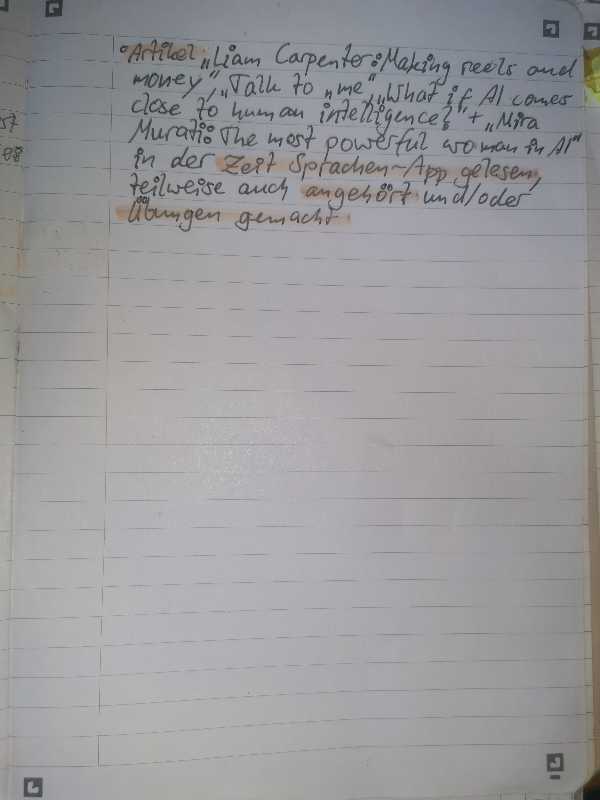 • Artikel „Liam Carpenter: Making reels and
money", „Talk to „me", „What if AI comes
close to human intelligence?" + „Mira
Murati: The most powerful woman in AI"
in der Zeit Sprachen-App gelesen,
teilweise auch angehört und/oder
Übungen gemacht
57